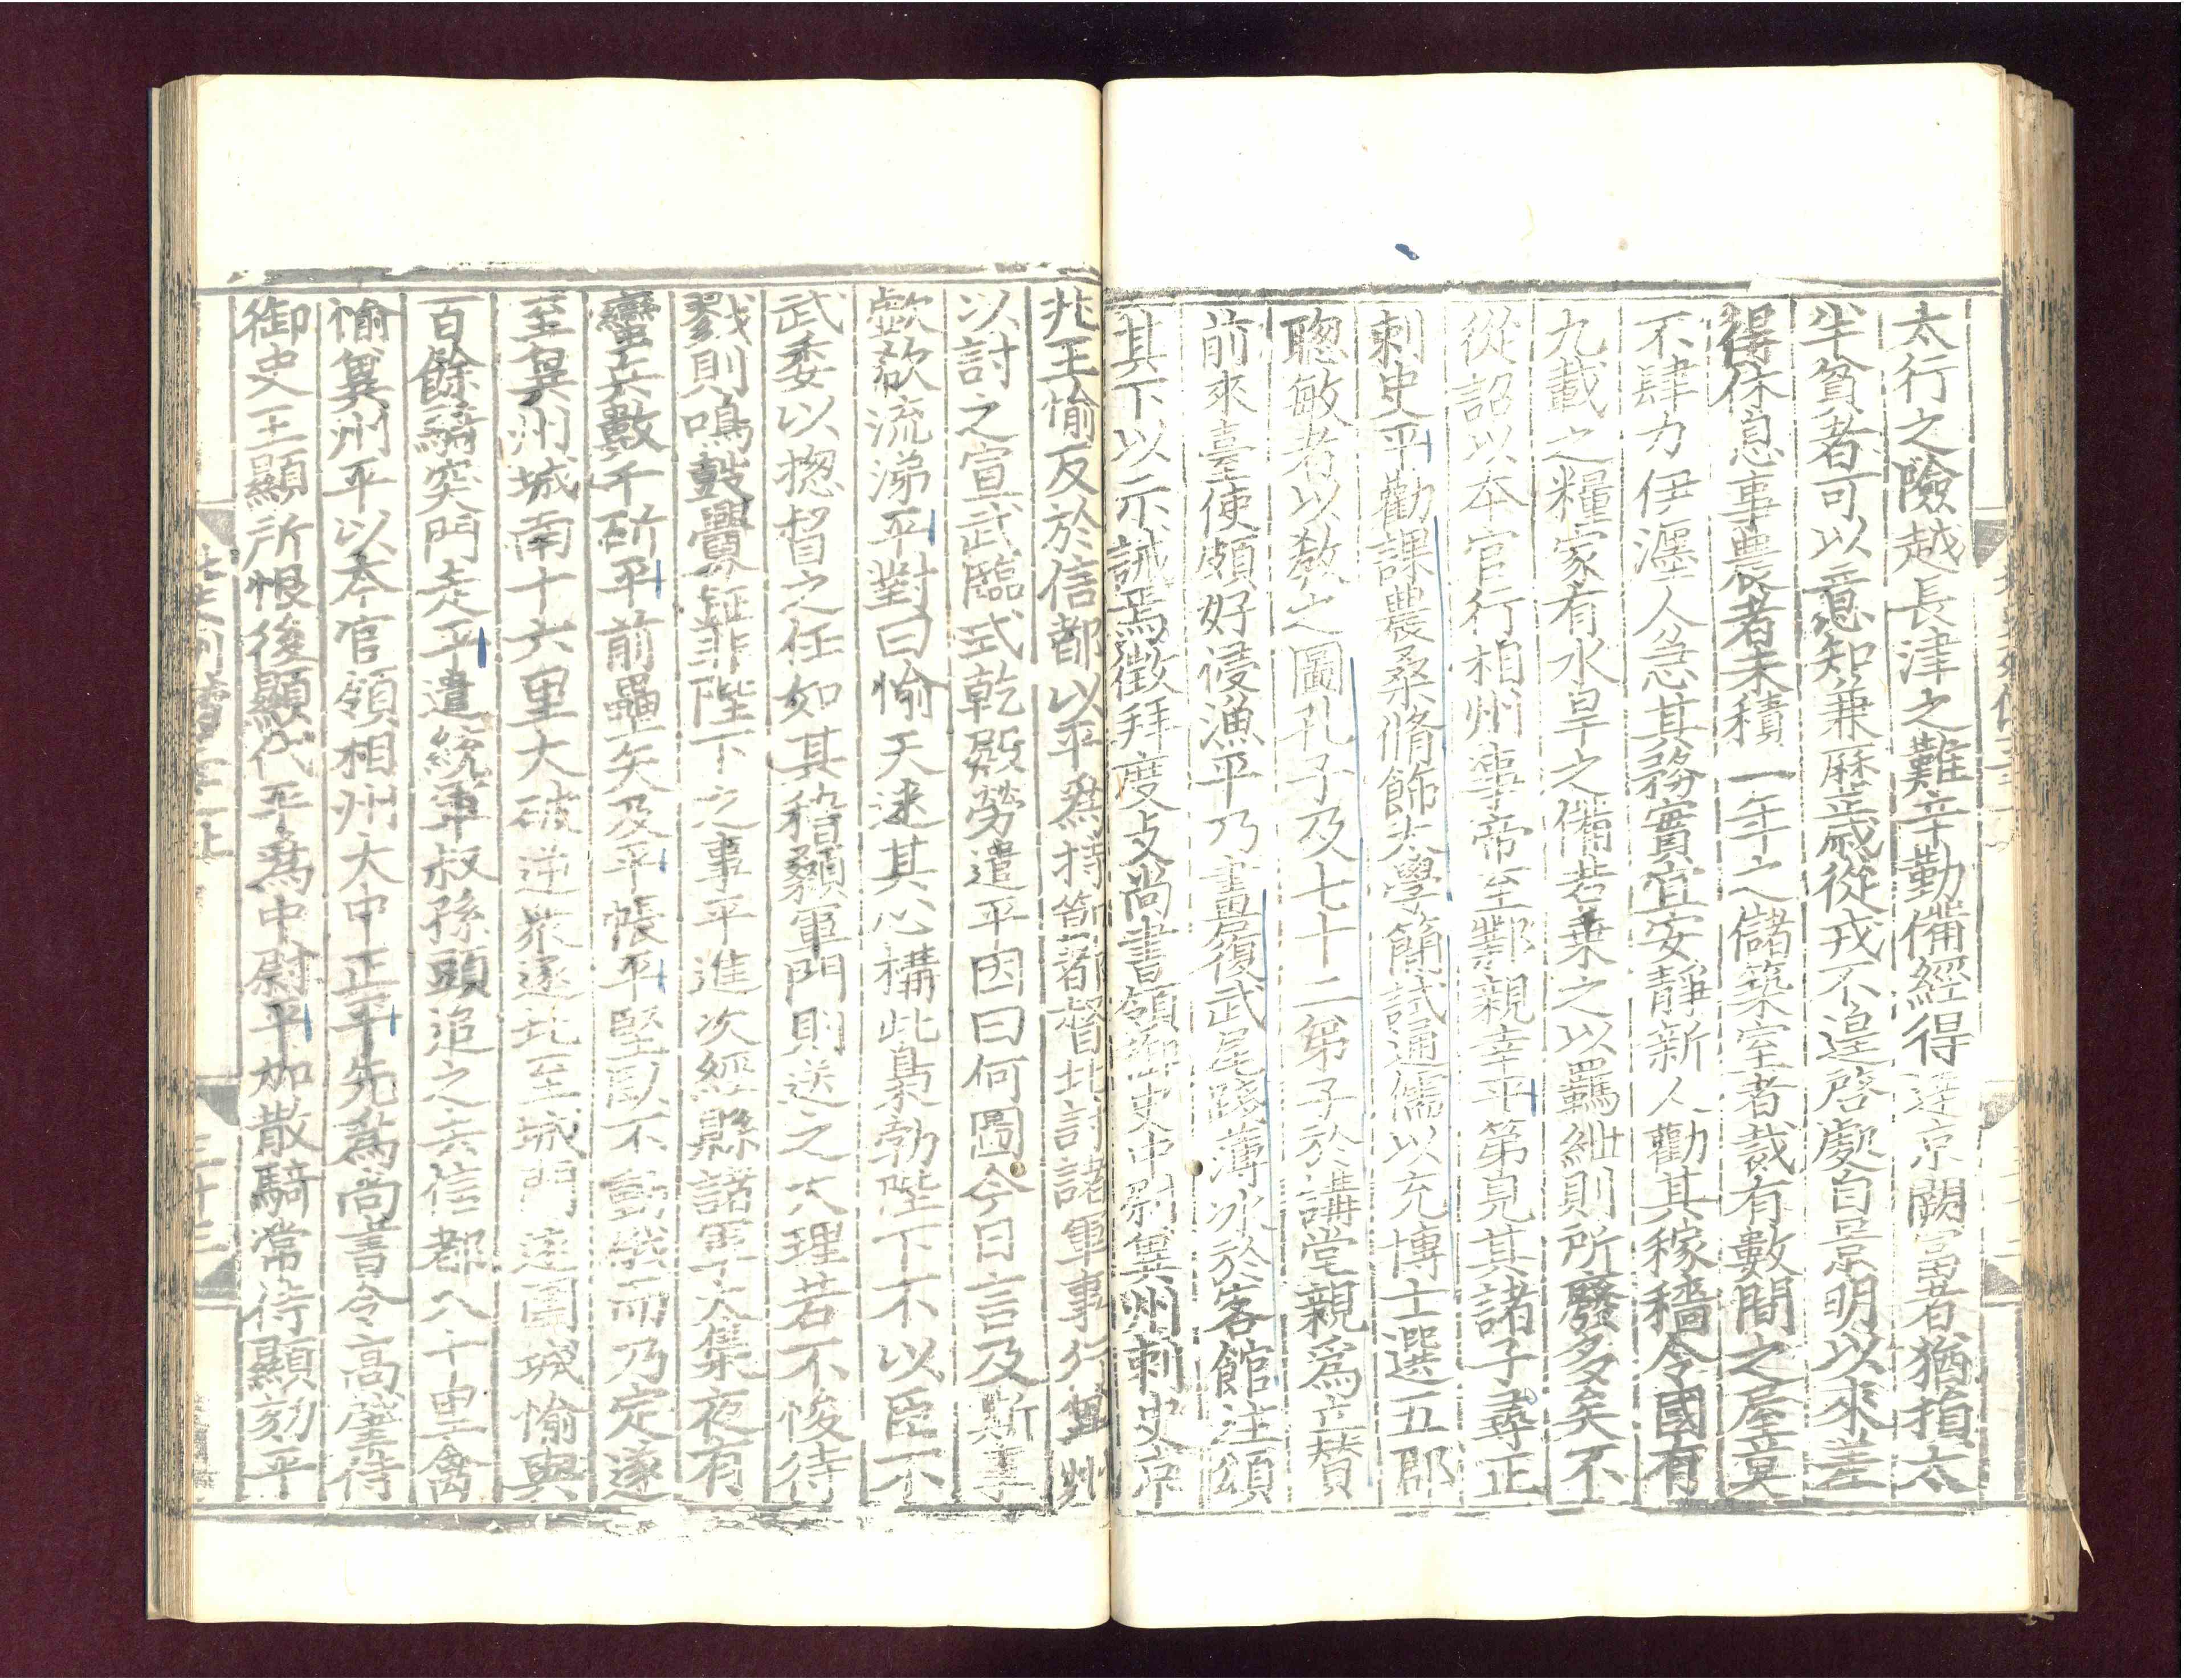 太行之險越長津之難辛勤備經得達京闕富者猶損太
半貧者可以意知兼歷歲從戎不遑啓處自景明以來差
得休息事農者未積一年之儲築室者裁有數間之屋莫
不肆力伊瀍人急其務實宜安靜新人勸其稼穡令國有
九載之糧家有水旱之備若乗之以羈紲則所廢多矣不
從詔以本官行相州事帝至鄴親幸平第見其諸子尋正
刺史平勸課農桑脩飾太學簡試通儒以充博士選五郡
聦敏者以敎之圖孔子及七十二弟子於講堂親爲立贊
前來臺使頗好侵漁平乃畫履武尾踐薄冰於客館注頌
其下以示誡焉徵拜度支尚書領御史中尉冀州刺史京
兆王愉反於信都以平爲持節都督北討諸軍事行冀州
以討之宣武臨式乾殿勞遣平因曰何圖今日言及斯事
歔欷流涕平對曰愉天迷其心構此梟勃陛下不以臣不
武委以揔督之任如其稽顙軍門則送之大理若不悛待
戮則鳴鼓釁鉦非陛下之事平進次經縣諸軍大集夜有
蠻兵數千斫平前壘矢及平帳平堅臥不動俄而乃定遂
至冀州城南十六里大破逆衆逐北至城門遂圍城愉與
百餘騎突門走平遣統軍叔孫頭追之去信都八十里禽
愉冀州平以本官領相州大中正平先爲尚書令高肇侍
御史王顯所恨後顯代平爲中尉平加散騎常侍顯劾平
北史列傳三十一
三十三